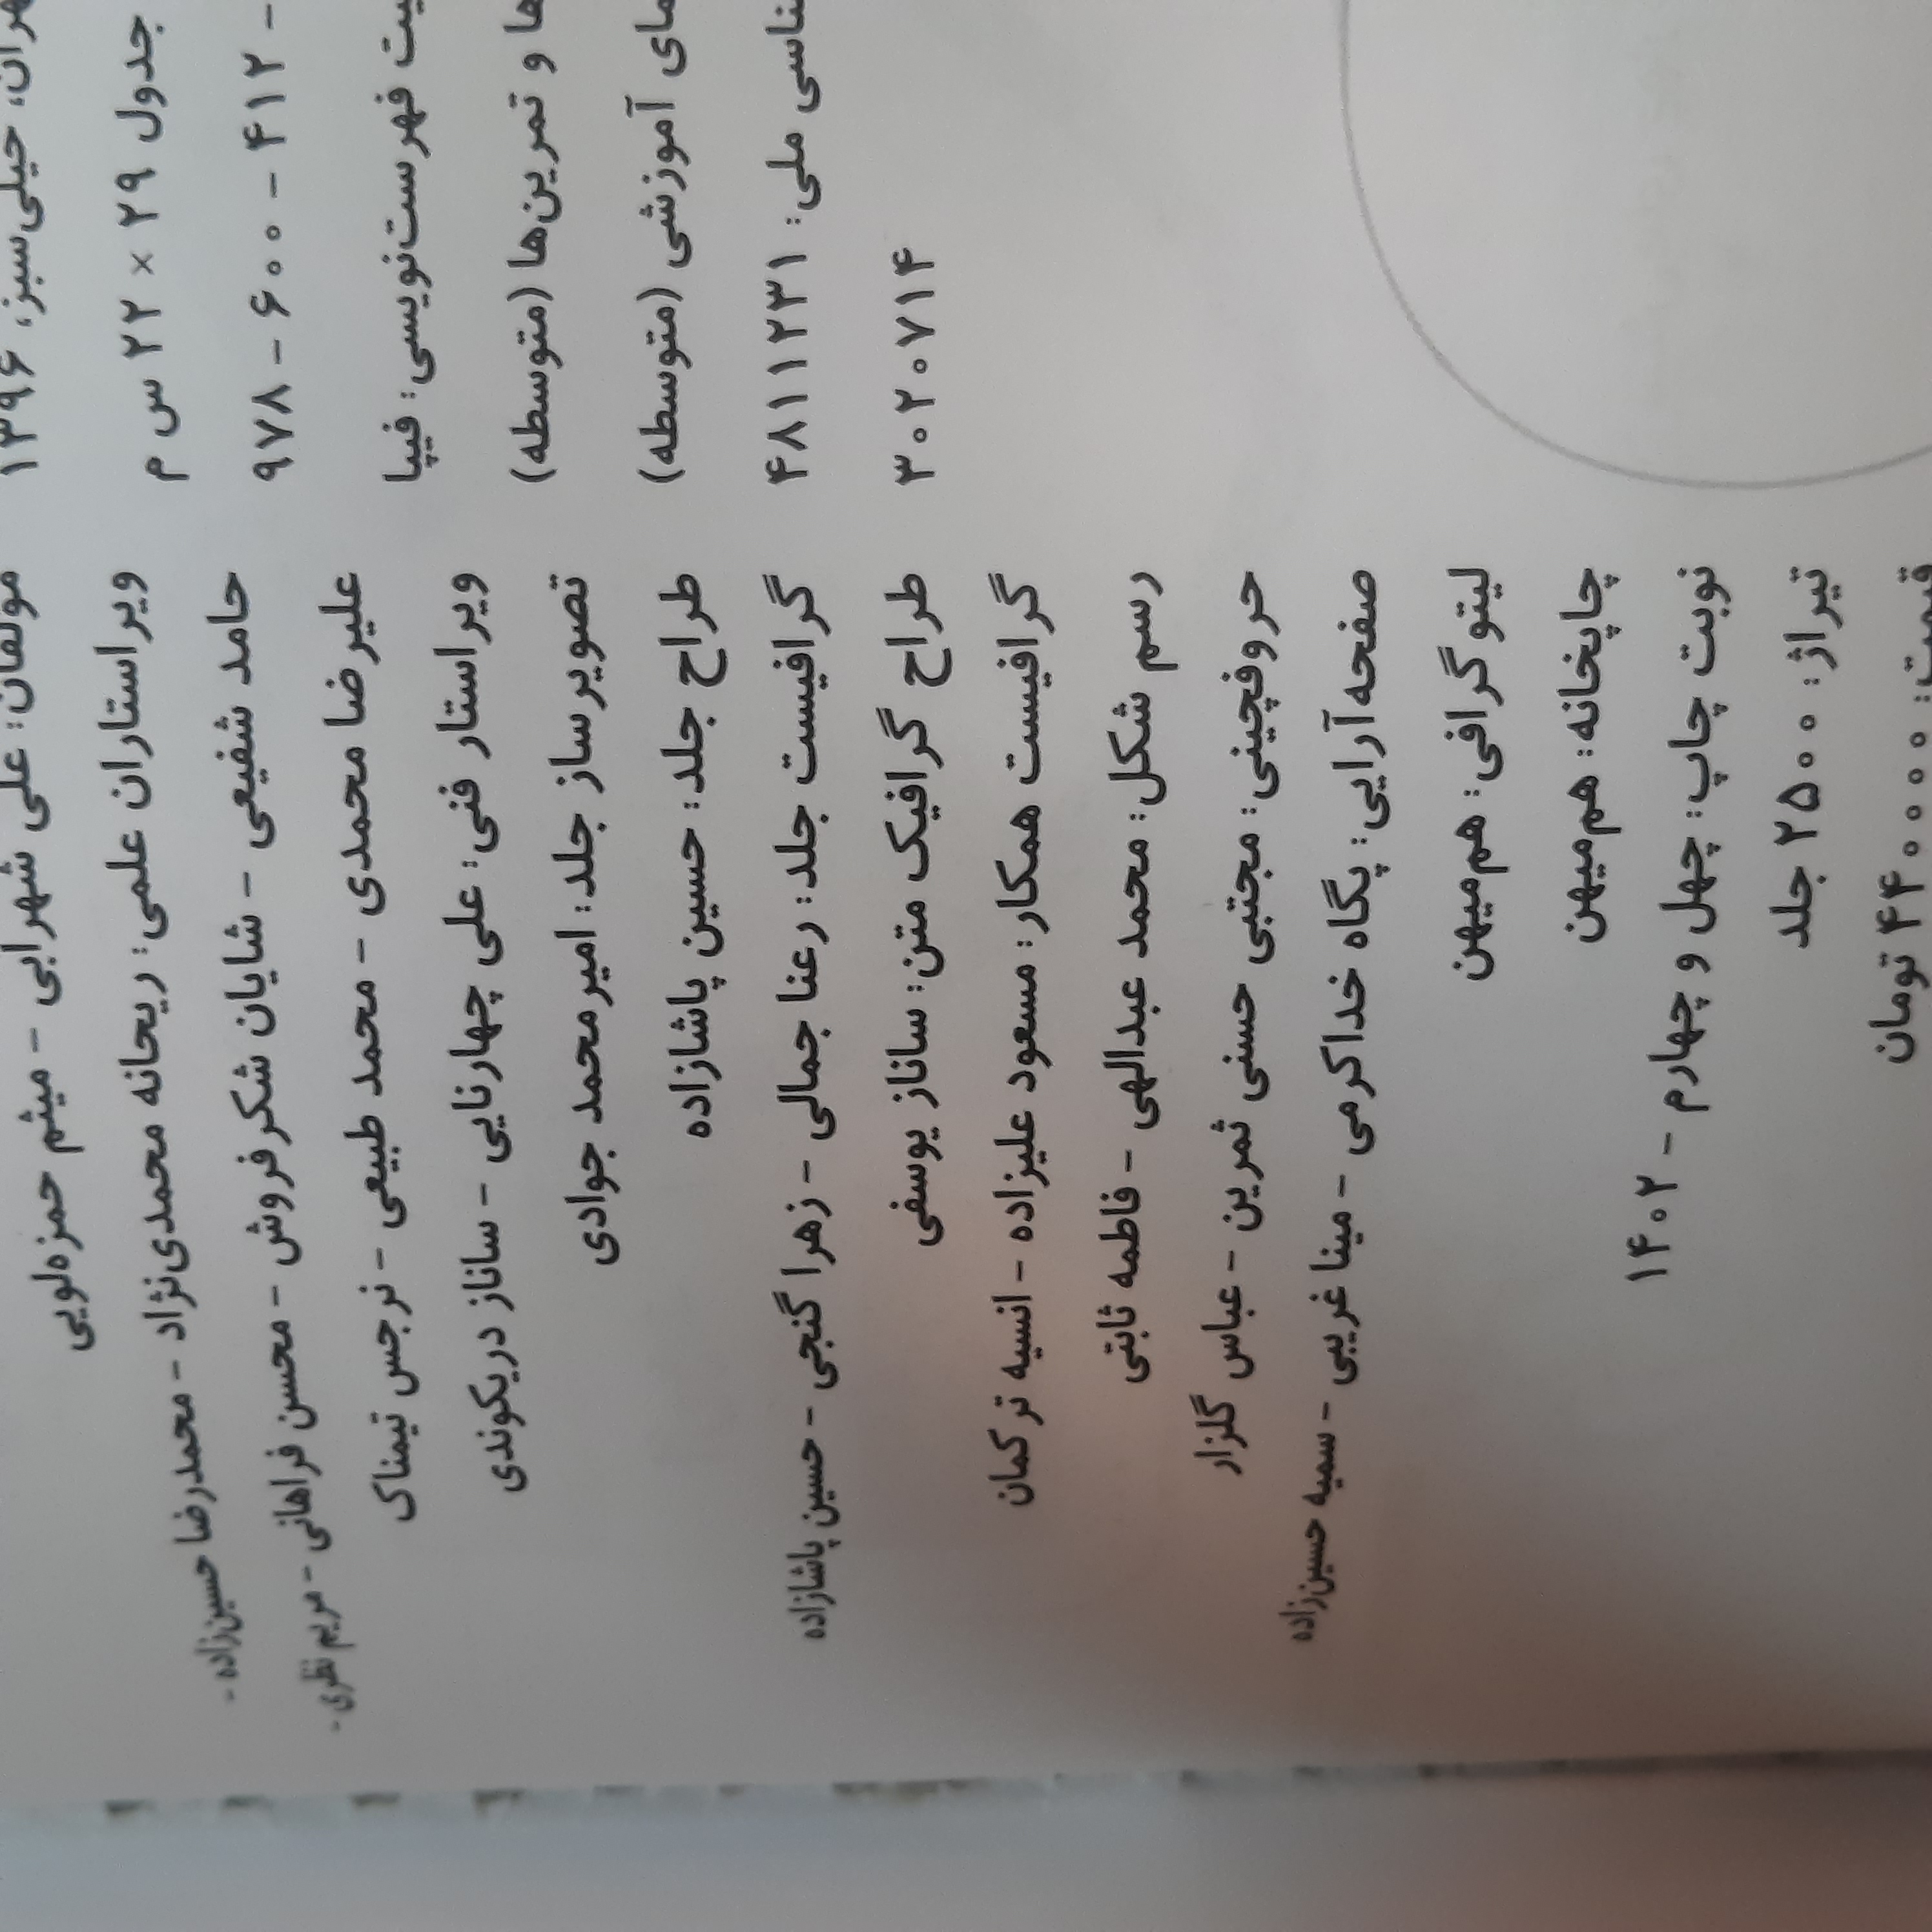 خیلی‌سبز، ۱۳۹۶
جدول ۲۹ × ۲۲ س م
۹۷۸ - ۶۰۰ - ۴۱۲ -
فهرست‌نویسی: فیپا
و تمرین‌ها (متوسطه)
آموزشی (متوسطه)
ملی: ۴۸۱۱۲۳۱
۳۰۲۰۷۱۴
مولفان: علی شهرابی - میثم حمزه‌لویی
ویراستاران علمی: ریحانه محمدی‌نژاد - محمدرضا حسین‌زاده -
حامد شفیعی - شایان شکرفروش - محسن فراهانی - مریم نظری -
علیرضا محمدی - محمد طبیعی - نرجس تیمناک
ویراستار فنی: علی چهارنایی - ساناز دریکوندی
تصویرساز جلد: امیرمحمد جوادی
طراح جلد: حسین پاشازاده
گرافیست جلد: رعنا جمالی - زهرا گنجی - حسین پاشازاده
طراح گرافیک متن: ساناز یوسفی
گرافیست همکار: مسعود علیزاده - انسیه ترکمان
رسم شکل: محمد عبدالهی - فاطمه ثابتی
حروفچینی: مجتبی حسنی ثمرین - عباس گلزار
صفحه‌آرایی: پگاه خداکرمی - مینا غریبی - سمیه حسین‌زاده
لیتوگرافی: هم‌میهن
چاپخانه: هم‌میهن
نوبت چاپ: چهل و چهارم - ۱۴۰۲
تیراژ: ۲۵۰۰ جلد
قیمت: ۴۴۰۰۰۰ تومان